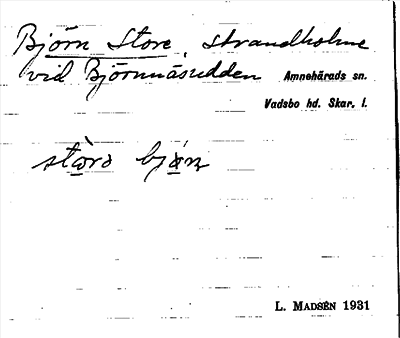 Björn Store, strandholme
vid Björnnäsudden Amnehärads sn.
Vadsbo hd. Skar. l.
stòrə bjǻn
L. MADSÉN 1931